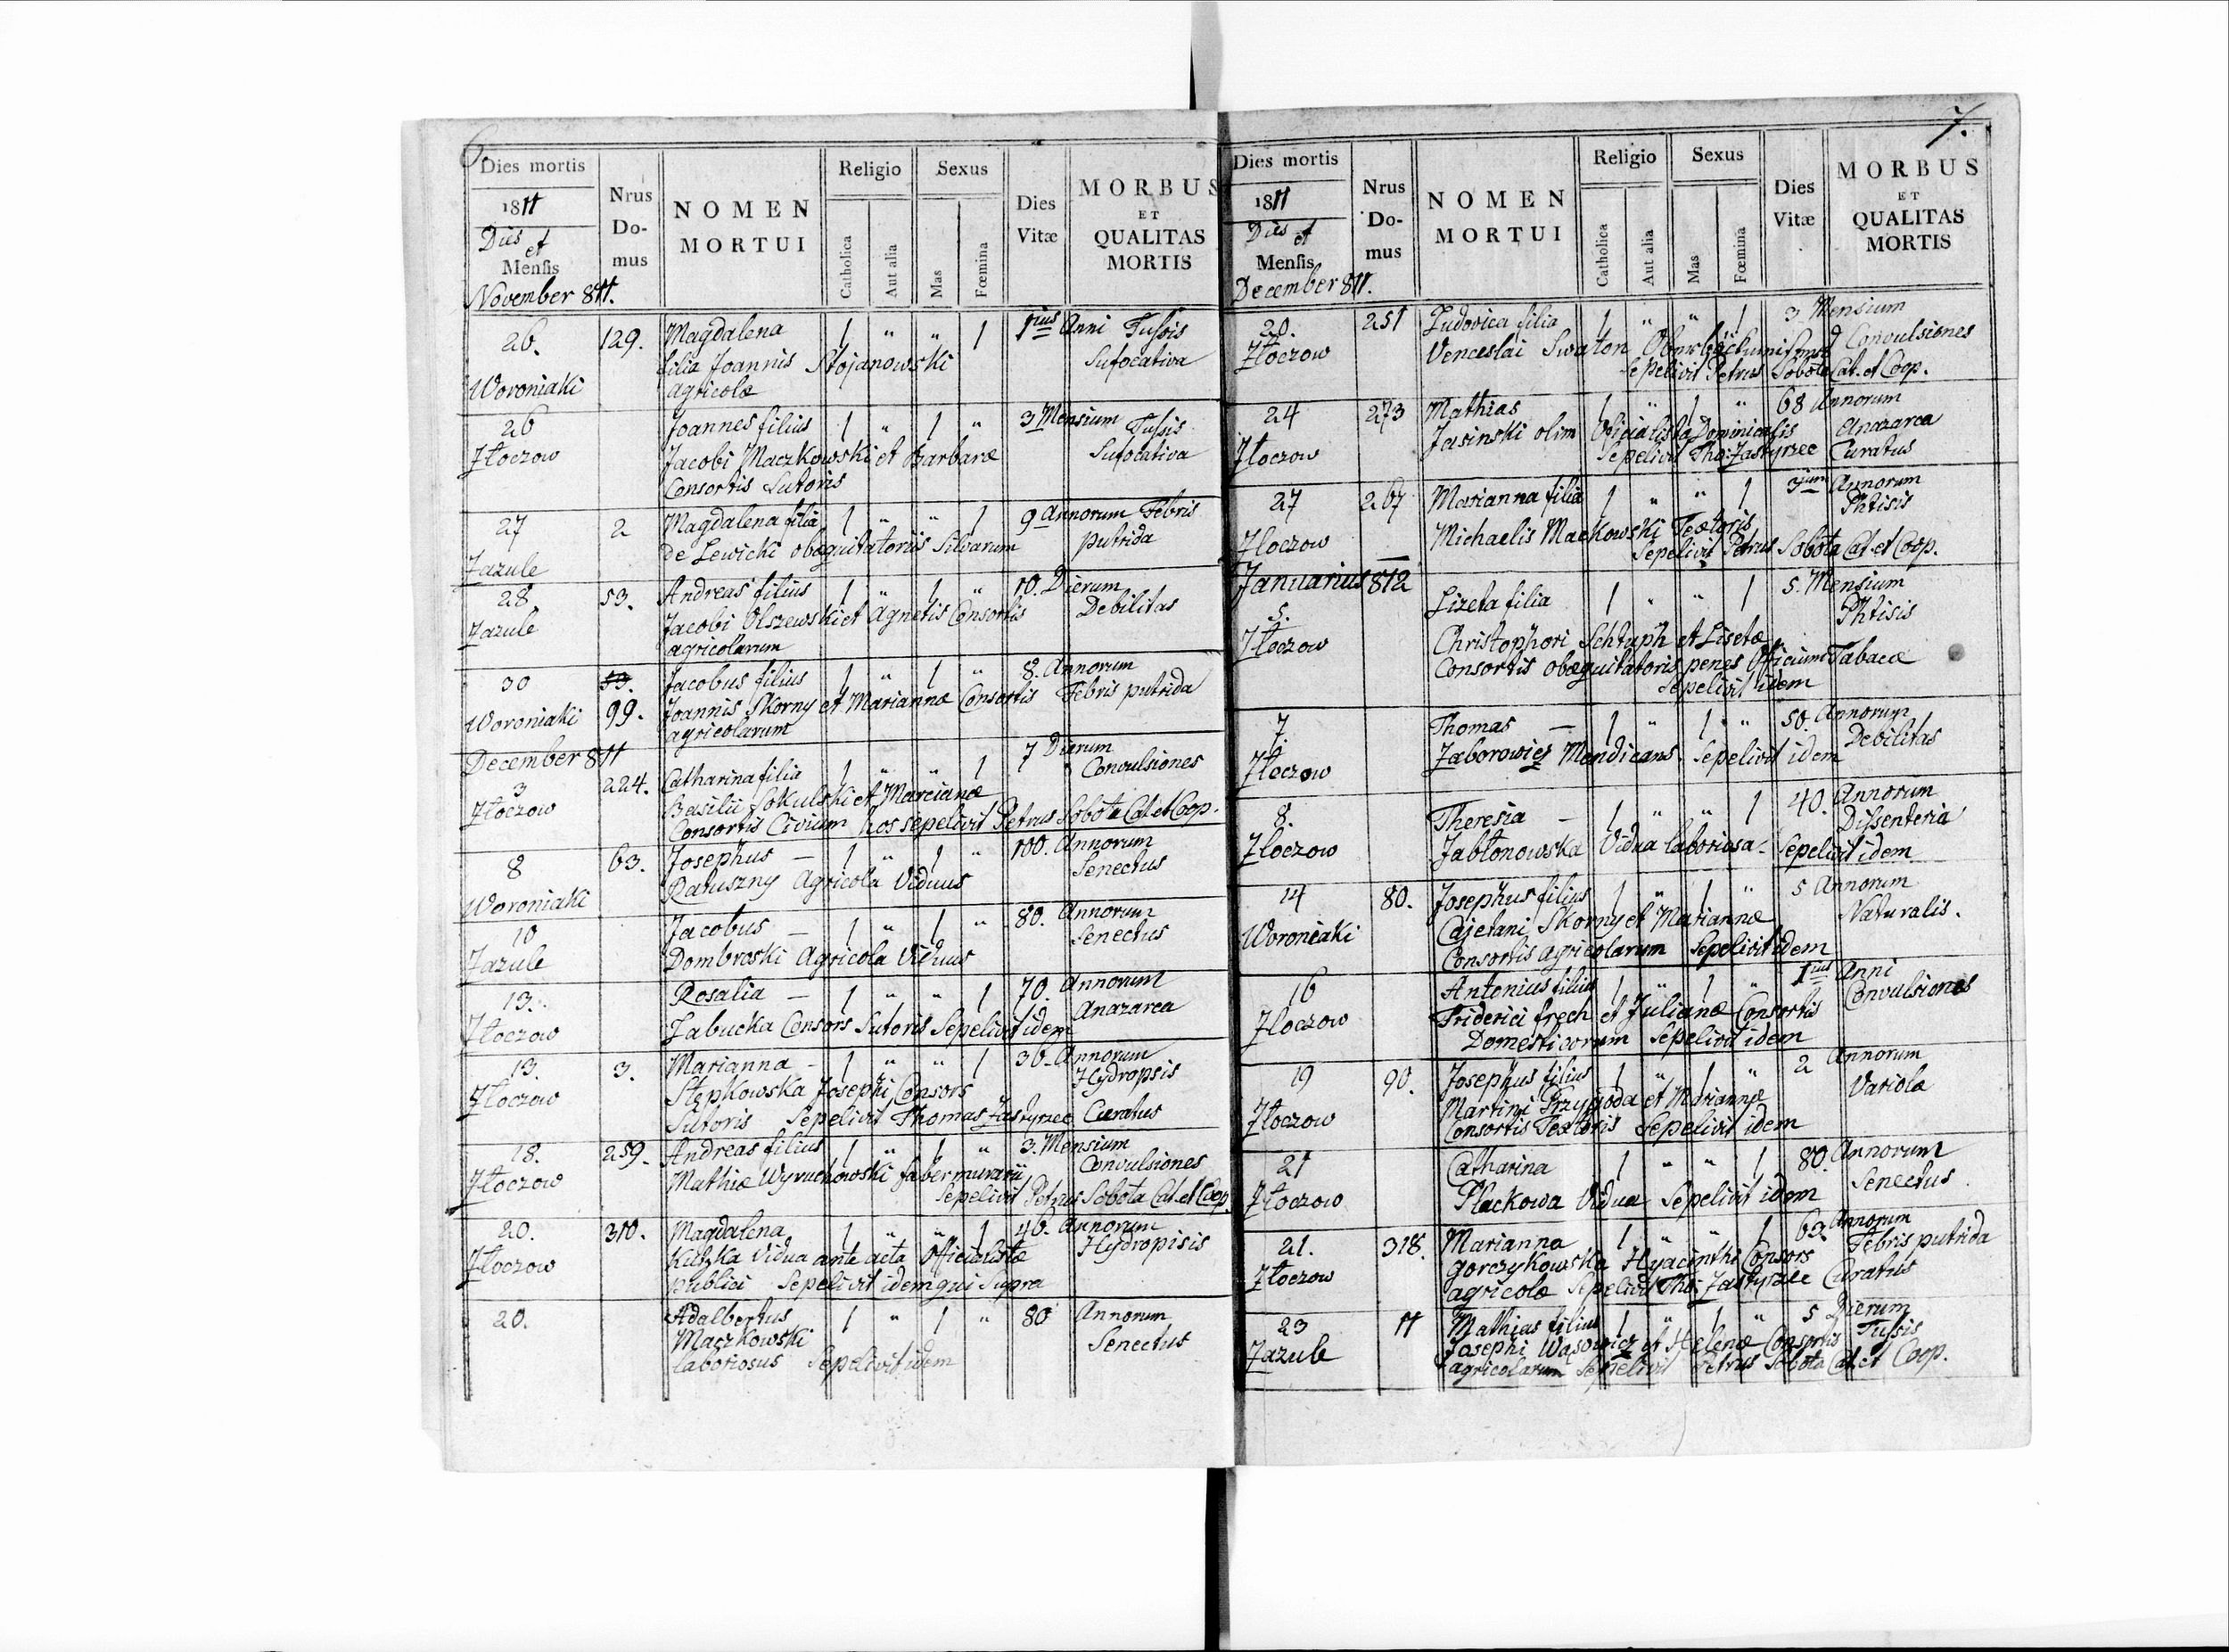 6.
Dies mortis
1811
Dies et
Mensis
November 811.
Nrus
Do-
mus
NOMEN
MORTUI
Religio
Catholica
Aut alia
Sexus
Mas
Fœmina
Dies
Vitæ
MORBUS
ET
QUALITAS
MORTIS
26. 129. Magdalena 1 " " 1 1ius Anni Tussis
filia Joannis Stojanowski Sufocativa
Woroniaki agricolæ
26 Joannes filius 1 " 1 " 3 Mensium Tussis
Złoczow Jacobi Maczkowski et Barbaræ Sufocativa
Consortis Sutoris
27 2 Magdalena filia 1 " " 1 9 Annorum Febris
de Lewicki obequitatoris Silvarum putrida
Zazule
28 53. Andreas filius 1 " 1 " 10. Dierum
Zazule Jacobi Olszewski et Agnetis Consortis Debilitas
agricolarum
30 53. Jacobus filius 1 " 1 " 8. Annorum
Woroniaki 99. Joannis Skorny et Mariannæ Consortis Febris putrida
agricolarum
December 811
3 224. Catharina filia 1 " " 1 7 Dierum
Złoczow Basilii Sokulski et Marcianæ Convulsiones
Consortis Civium hos sepelivit Petrus Sobota Cat. et Coop.
8 63. Josephus — 1 " 1 " 100. Annorum
Woroniaki Ratuszny Agricola Viduus Senectus
10 Jacobus — 1 " 1 " 80. Annorum
Zazule Dombroski Agricola Viduus Senectus
13. Rosalia — 1 " " 1 70. Annorum
Złoczow Zabucka Consors Sutoris Sepelivit idem Anazarca
13. 3. Marianna - 1 " " 1 36. Annorum
Złoczow Stępkowska Josephi Consors Hydropsis
Sutoris Sepelivit Thomas Zastyrzec Curatus
18. 259. Andreas filius 1 " 1 " 3. Mensium
Złoczow Mathiæ Wyruchowski faber murarii Convulsiones
Sepelivit Petrus Sobota Cat. et Coop.
20. 310. Magdalena 1 " " 1 46. Annorum
Złoczow Kutzka Vidua ante acta Officialistæ Hydropisis
publici Sepelivit idem qui Supra
20. Adalbertus 1 " 1 " 80 Annorum
Maczkowski Senectus
laboriosus Sepelivit idem
7.
Dies mortis
1811
Dies et
Mensis
December 811.
Nrus
Do-
mus
NOMEN
MORTUI
Religio
Catholica
Aut alia
Sexus
Mas
Fœmina
Dies
Vitæ
MORBUS
ET
QUALITAS
MORTIS
20. 251 Ludovica filia 1 " " 1 3 Mensium
Złoczow Venceslai Swaton Convulsiones
Sepelivit Petrus Sobota Cat. et Coop.
24 273 Mathias 1 " 1 " 68 Annorum
Jasinski olim Oficialista Dominicalis Anazarca
Złoczow Sepelivit Tho: Zastyrzec Curatus
27 267 Marianna filia 1 " " 1 3ium Annorum
Złoczow Michaelis Mackowski Textoris Phtisis
Sepelivit Petrus Sobota Cat. et Coop.
Januarius 812
5. Lizeta filia 1 " " 1 5. Mensium
Złoczow Christophori Schtuph et Lisetæ Phtisis
Consortis obequitatoris penes Officium Tabacæ
Sepelivit idem
7. Thomas — 1 " 1 " 50. Annorum
Złoczow Zaborowicz Mendicans Sepelivit idem Debilitas
8. Theresia — 1 " " 1 40. Annorum
Złoczow Jabłonowska Vidua laboriosa - Sepelivit idem Dissenteria
14 80. Josephus filius 1 " 1 " 5 Annorum
Woroniaki Cajetani Skorny et Mariannæ Naturalis.
Consortis agricolarum Sepelivit idem
16 Antonius filius 1 " 1 " 1ius Anni
Złoczow Friderici frech et Julianæ Consortis Convulsiones
Domesticorum Sepelivit idem
19 90. Josephus filius 1 " 1 " 2 Annorum
Złoczow Martini Przygoda et Mariannæ Variolæ
Consortis Textoris Sepelivit idem
21 Catharina 1 " " 1 80. Annorum
Złoczow Plackowa Vidua Sepelivit idem Senectus
21. 318. Marianna 1 " " 1 63. Annorum
Złoczow Gorczykowska Hyacinthi Consors Febris putrida
agricolæ Sepelivit Tho: Zastyrzec Curatus
23 11 Mathias filius 1 " 1 " 5 Dierum
Zazule Josephi Wąsowicz et Helenæ Consortis Tussis
agricolarum Sepelivit Petrus Sobota Cat. et Coop.